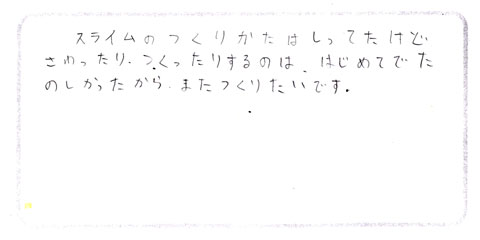 スライムのつくりかたはしってたけど
さわったり、つくったりするのは、はじめてでた
のしかったから、またつくりたいです。